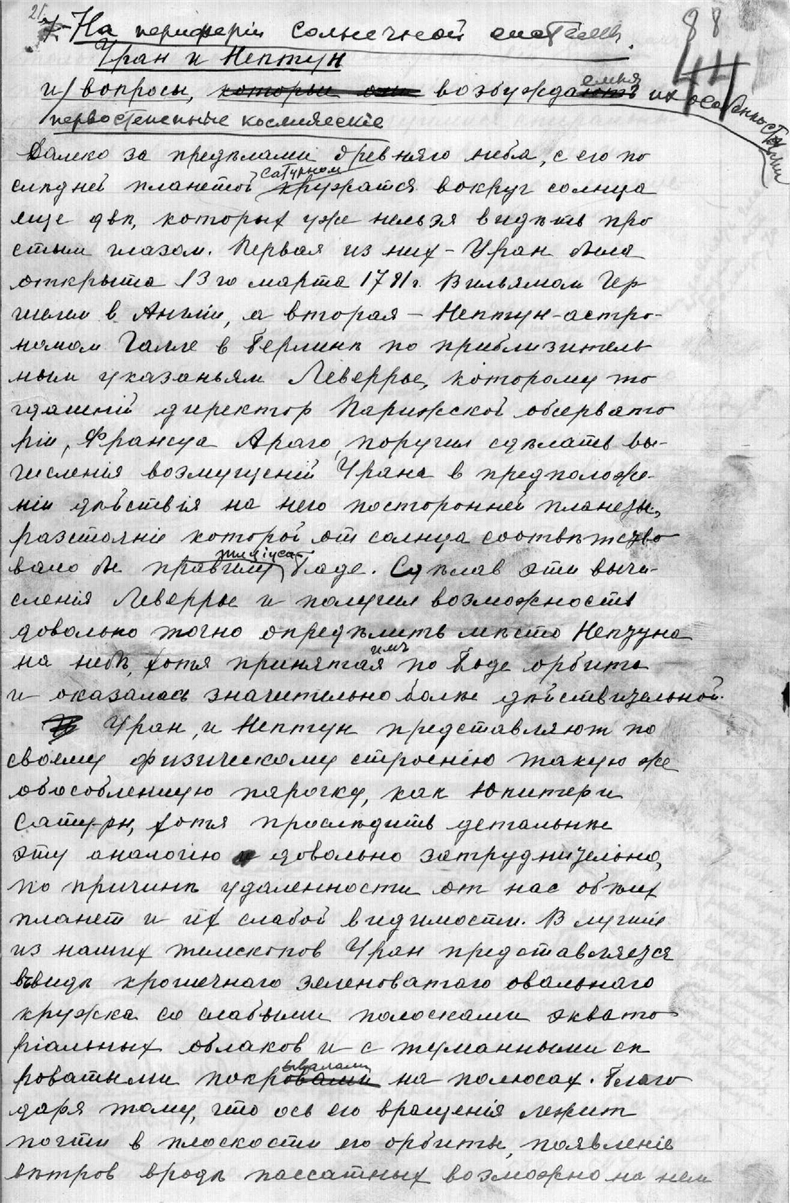 21
7. На периферіи солнечной системы.
88
44
Уран и Нептун
и вопросы, которые они возбуждаемые их особенностями
первостепенные космическіе
Далеко за предѣлами древняго неба, с его по
слѣдней планетой Сатурном кружатся вокруг солнца
еще двѣ, которых уже нельзя видѣть про
стым глазом. Первая из них – Уран была
открыта 13го марта 1781г. Вильямом Гер
шелем в Англіи, а вторая – Нептун – астро-
номом Галле в Берлинѣ по приблизитель
ным указаньям Леверрье, которому то
гдашній директор Парижской обсервато
ріи, Франсуа Араго, поручил сдѣлать вы-
численія возмущеній Урана в предположе-
ніи дѣйствія на него посторонней планеты,
разстояніе которой от солнца соответство
вало бы правилу Тиціуса Боде. Сдѣлав эти вычи-
сленія Леверрье и получил возможность
довольно точно опредѣлить мѣсто Нептуна
на небѣ, хотя принятая имъ по Боде орбита
и оказалась значительно болѣе дѣйствительной.
Уран, и Нептун представляют по
своему физическому строенію такую же
обособленную парочку, как Юпитер и
Сатурн, хотя прослѣдить детальнѣе
эту аналогію довольно затруднительно,
по причинѣ удаленности от нас обѣих
планет и их слабой видимости. В лучшіе
из наших телескопов Уран представляется
в видѣ крошечнаго зеленоватаго овальнаго
кружка со слабыми полосками эквато
ріальных облаков и с туманными сѣ
роватыми покрывалами на полюсах. Благо
даря тому, что ось его вращенія лежит
почти в плоскости его орбиты, появленіе
вѣтров вродѣ пассатных возможно на нем